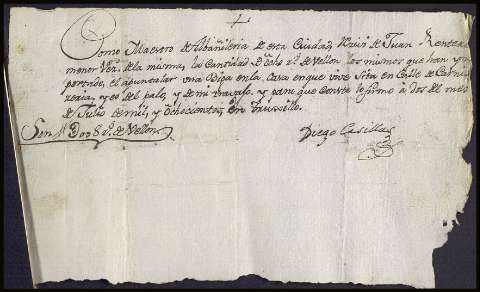 Como Maestro de Albañileria de esta Ciudad, Reciví de Juan Rentero
menor Vez.º de la misma, la Cantidad de ocho r.s de Vellon los mismos que han ym
portado, el apuntalar una Biga en la Casa en que vive Sita en Calle de Carni
zeria, y es del palo, y de mi travajo, y para que conste lo firmo a dos del mes
de Julio de mil, y ochocientos,
Son 8 r.s de Vellon
Diego Casillas